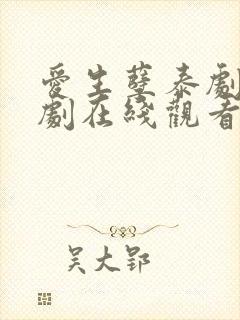 愛生孽泰劇
劇在綫觀看
吴大郢